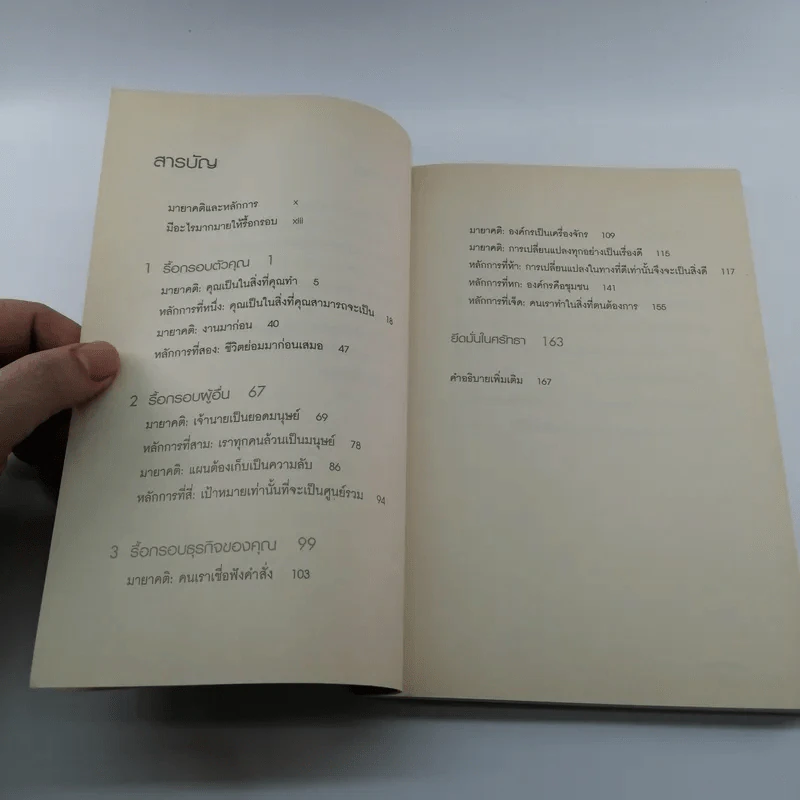 สารบัญ
มายาคติและหลักการ x
มีอะไรมากมายให้รื้อกรอบ xiii
1 รื้อกรอบตัวคุณ 1
มายาคติ: คุณเป็นในสิ่งที่คุณทำ 5
หลักการที่หนึ่ง: คุณเป็นในสิ่งที่คุณสามารถจะเป็น 18
มายาคติ: งานมาก่อน 40
หลักการที่สอง: ชีวิตย่อมมาก่อนเสมอ 47
2 รื้อกรอบผู้อื่น 67
มายาคติ: เจ้านายเป็นยอดมนุษย์ 69
หลักการที่สาม: เราทุกคนล้วนเป็นมนุษย์ 78
มายาคติ: แผนต้องเก็บเป็นความลับ 86
หลักการที่สี่: เป้าหมายเท่านั้นที่จะเป็นศูนย์รวม 94
3 รื้อกรอบธุรกิจของคุณ 99
มายาคติ: คนเราเชื่อฟังคำสั่ง 103
มายาคติ: องค์กรเป็นเครื่องจักร 109
มายาคติ: การเปลี่ยนแปลงทุกอย่างเป็นเรื่องดี 115
หลักการที่ห้า: การเปลี่ยนแปลงในทางที่ดีเท่านั้นจึงจะเป็นสิ่งดี 117
หลักการที่หก: องค์กรคือชุมชน 141
หลักการที่เจ็ด: คนเราทำในสิ่งที่ตนต้องการ 155
ยึดมั่นในศรัทธา 163
คำอธิบายเพิ่มเติม 167